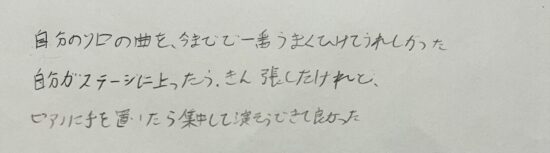 自分のソロの曲を、今までで一番うまくひけてうれしかった
自分がステージに上ったら、きん張したけれど、
ピアノに手を置いたら集中して演そうできて良かった